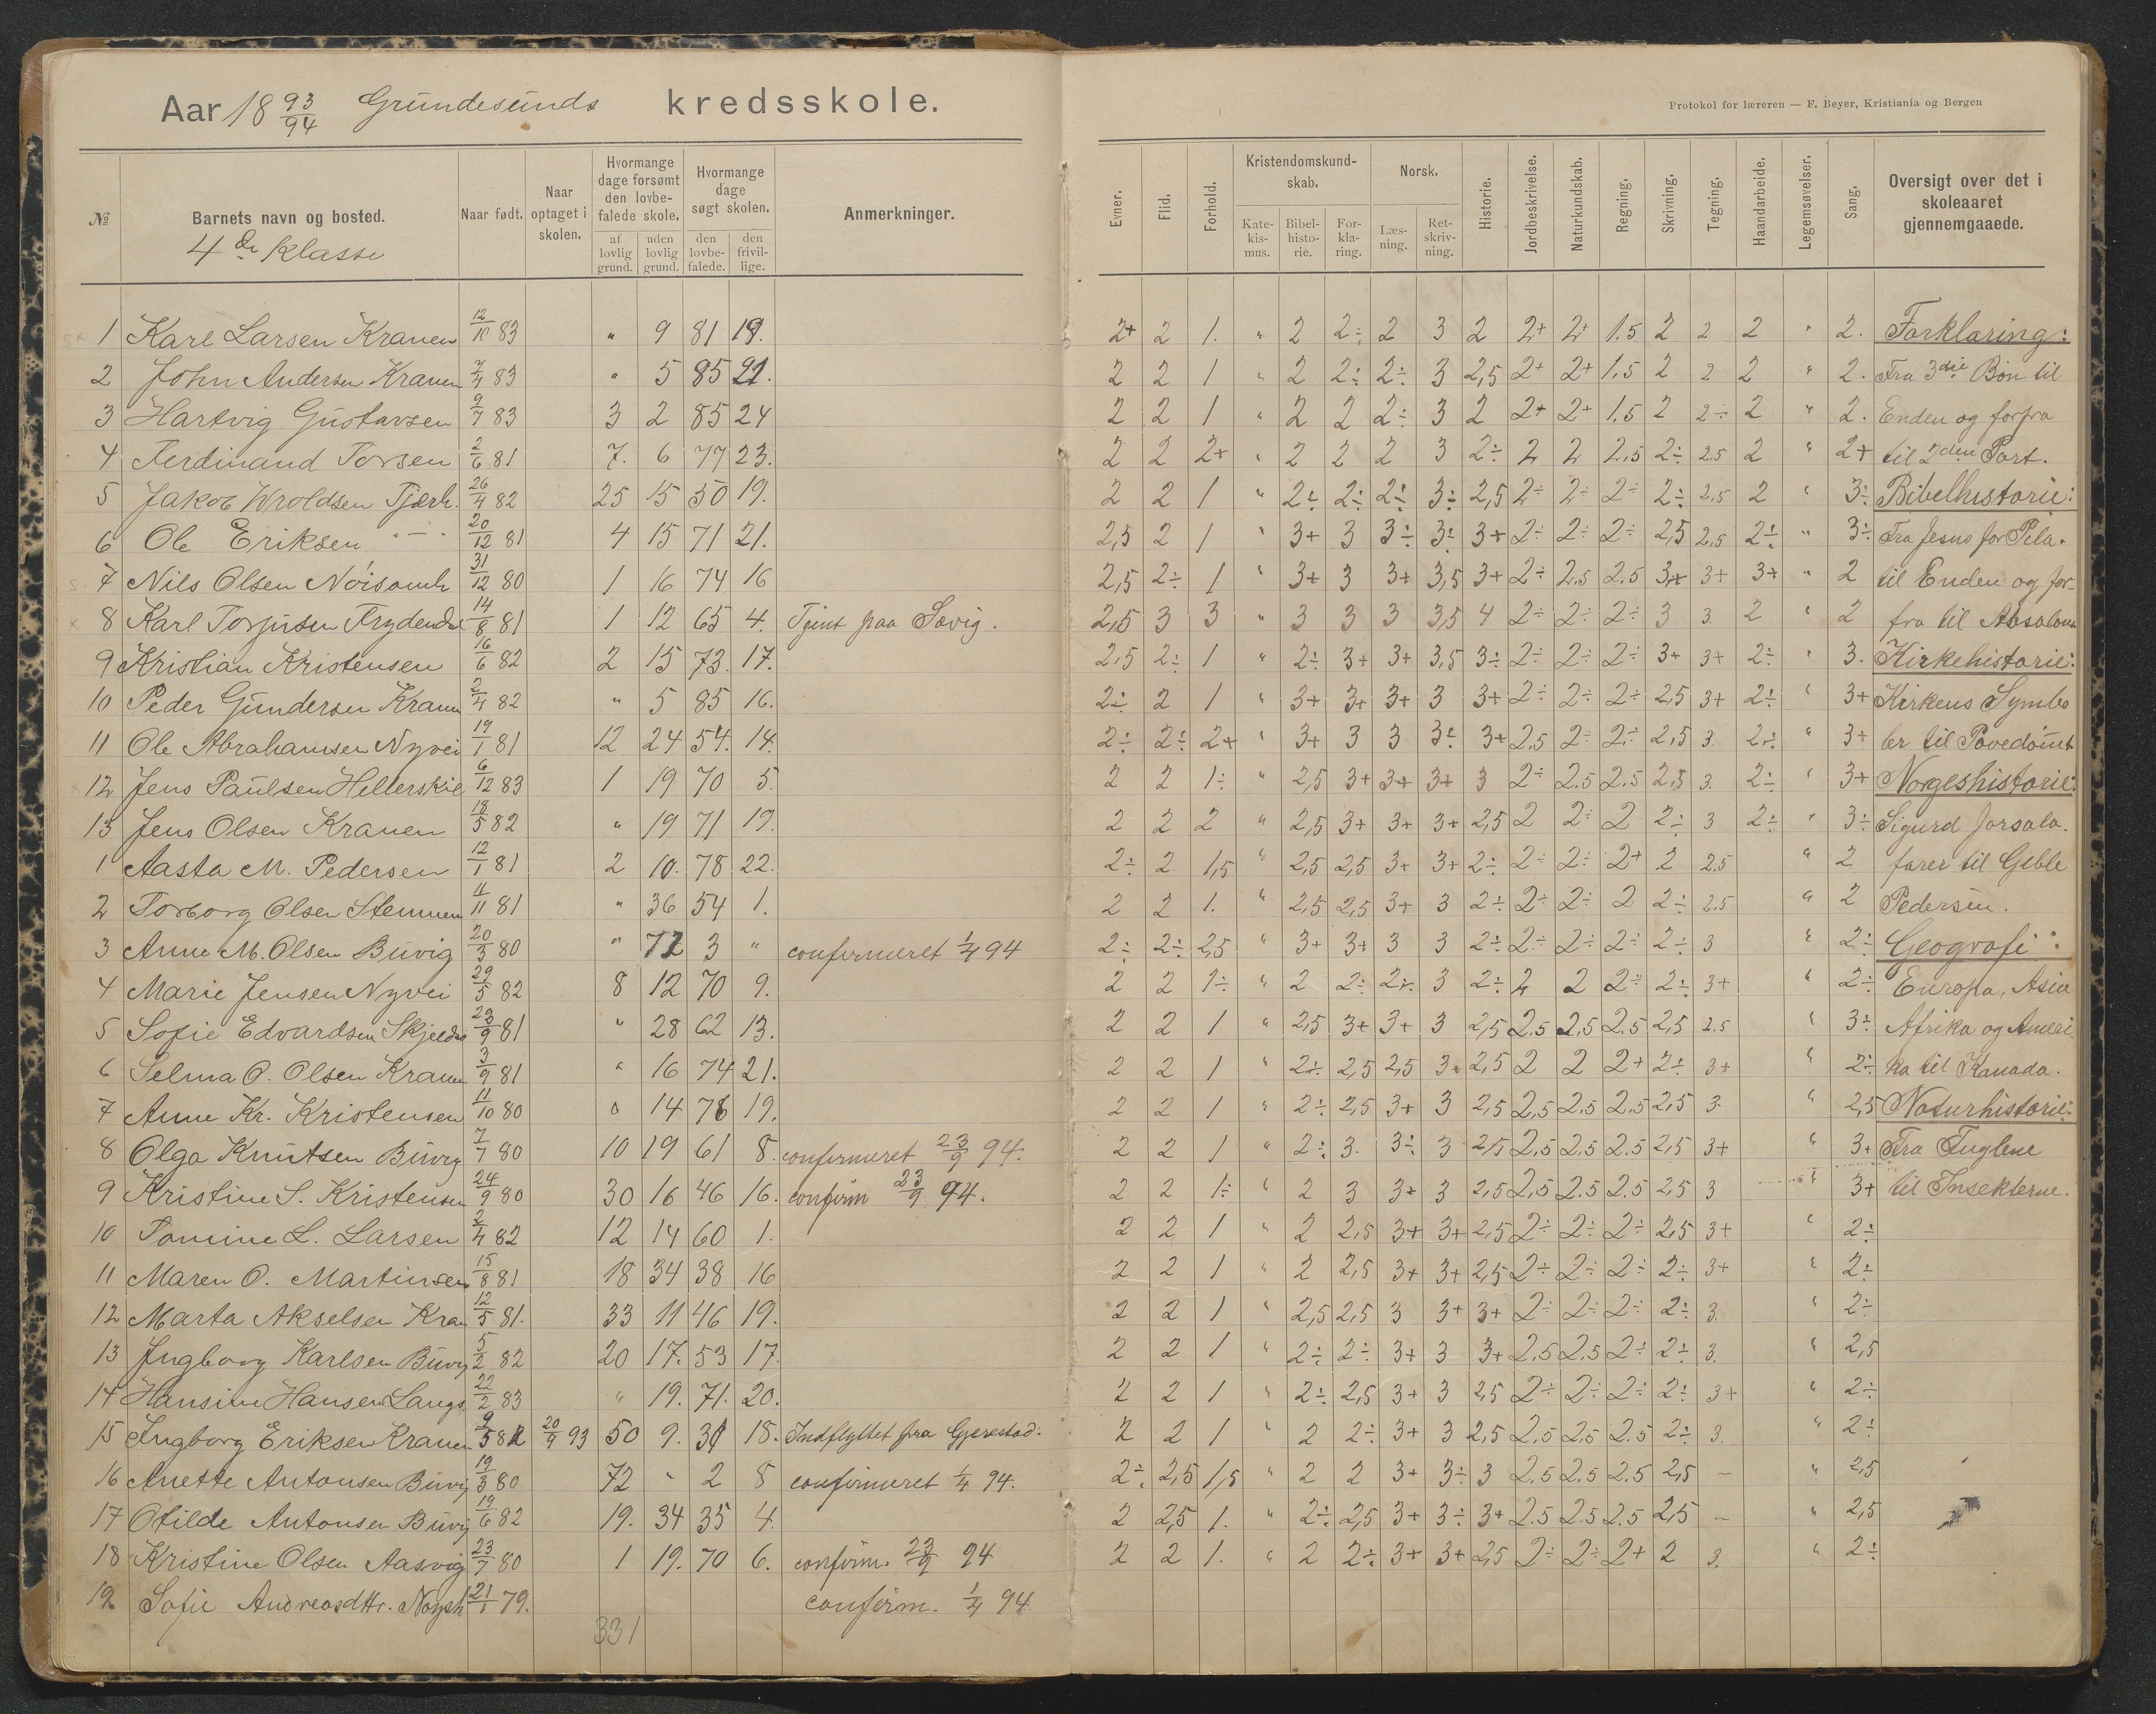 Aar 18 93/94 Grundesunds kredsskole.
Protokol for læreren — F. Beyer, Kristiania og Bergen
№ Barnets navn og bosted. Naar født. Naar optaget i skolen. Hvormange dage forsømt den lovbefalede skole. af lovlig grund. uden lovlig grund. Hvormange dage søgt skolen. den lovbefalede. den frivillige. Anmerkninger.
4de Klasse
Evner. Flid. Forhold. Kristendomskundskab. Katekismus. Bibelhistorie. Forklaring. Norsk. Læsning. Retskrivning. Historie. Jordbeskrivelse. Naturkundskab. Regning. Skrivning. Tegning. Haandarbeide. Legemsøvelser. Sang. Oversigt over det i skoleaaret gjennemgaaede.
1 Karl Larsen Kranen 12/10 83 " 9 81 19. 2+ 2 1. " 2 2÷ 2 3 2 2+ 2+ 1.5 2 2 2 " 2. Forklaring:
2 John Andersen Kranen 7/4 83 " 5 85 21. 2 2 1 " 2 2÷ 2÷ 3 2,5 2+ 2+ 1,5 2 2 2 " 2. Fra 3die Bøn til
3 Hartvig Gustavsen 9/7 83 3 2 85 24 2 2 1 " 2 2 2÷ 3 2 2+ 2+ 1.5 2 2÷ 2 " 2. Enden og forfra
4 Ferdinand Torsen 2/6 81 7. 6 77 23. 2 2 2+ " 2 2 2 3 2÷ 2 2 2,5 2÷ 2.5 2 " 2+ til 2den Part.
5 Jakob Wroldsen Tjerh. 26/4 82 25 15 50 19. 2 2 1 " 2÷ 2÷ 2÷ 3÷ 2,5 2÷ 2÷ 2÷ 2÷ 2,5 2 " 3÷ Bibelhistorie:
6 Ole Eriksen " 20/12 81 4 15 71 21. 2,5 2 1 " 3+ 3 3÷ 3÷ 3+ 2÷ 2÷ 2÷ 2,5 2,5 2÷ " 3÷ Fra Jesus for Pila.
7 Nils Olsen 31/12 80 1 16 74 16 2,5 2÷ 1 " 3+ 3 3+ 3,5 3+ 2÷ 2.5 2.5 3+ 3+ 3+ " 2 til Enden og for-
8 Karl Torjusen 14/8 81 1 12 65 4. Tjent paa Søvig. 2,5 3 3 " 3 3 3 3,5 4 2÷ 2÷ 2÷ 3 3. 2 " 2 fra til Absalom
9 Kristian Kristensen 16/6 82 2 15 73. 17. 2,5 2÷ 1 " 2÷ 3+ 3+ 3,5 3÷ 2÷ 2÷ 2÷ 3+ 3+ 2÷ " 3. Kirkehistorie:
10 Peder Gundersen Kranen 2/4 82 " 5 85 16. 2÷ 2 1 " 3+ 3+ 3+ 3 3+ 2÷ 2÷ 2÷ 2,5 3+ 2÷ " 3+ Kirkens Symbo
11 Ole Abrahamsen Nyvei 19/1 81 12 24 54. 14. 2÷ 2÷ 2+ " 3+ 3 3 3÷ 3+ 2,5 2÷ 2÷ 2,5 3. 2÷ " 3+ ler til Pavedømt
12 Jens Paulsen Hellerskil 6/12 83 1 19 70 5. 2 2 1÷ " 2,5 3+ 3+ 3+ 3 2÷ 2.5 2.5 2,5 3. 2÷ " 3+ Norgeshistorie:
13 Jens Olsen Kranen 18/5 82 " 19 71 19. 2 2 2 " 2,5 3+ 3+ 3+ 2,5 2 2÷ 2 2÷ 3 2÷ " 3÷ Sigurd Jorsala-
1 Aasta M. Pedersen 12/1 81 2 10. 78 22. 2÷ 2 1,5 " 2,5 2,5 3+ 3+ 2÷ 2÷ 2÷ 2+ 2 2,5 " 2 farer til Geble
2 Torborg Olsen Stemmen 11/11 81 " 36 54 1. 2 2 1. " 2,5 2,5 3+ 3 2÷ 2÷ 2÷ 2 2÷ 2.5 " 2 Pedersen.
3 Anne M. Olsen Buvig 20/3 80 " 72 3 " confirmeret 1/4 94 2÷ 2÷ 2,5 " 3+ 3+ 3 3 2÷ 2÷ 2÷ 2÷ 2÷ 3 " 2÷ Geografi:
4 Marie Jensen Nyvei 29/5 82 8 12 70 9. 2 2 1÷ " 2 2÷ 2÷ 3 2÷ 2 2 2÷ 2÷ 3+ " 2÷ Europa, Asia
5 Sofie Edvardsen 23/9 81 " 28 62 13. 2 2 1 " 2,5 3+ 3+ 3 2,5 2.5 2,5 2.5 2,5 2.5 " 3÷ Afrika og Ameri-
6 Selma O. Olsen Kranen 3/9 81 " 16 74 21. 2 2 1 " 2÷ 2,5 2,5 3+ 2,5 2 2 2+ 2÷ 3+ " 2÷ ka til Kanada.
7 Anne Kr. Kristensen 11/10 80 0 14 76 19. 2 2 1 " 2÷ 2,5 3+ 3 2,5 2,5 2.5 2.5 2,5 3. " 2,5 Naturhistorie:
8 Olga Knutsen Buvig 7/7 80 10 19 61 8. confirmeret 23/9 94. 2 2 1 " 2÷ 3. 3÷ 3 2,5 2.5 2.5 2.5 2,5 3+ " 3+ Fra Fuglene
9 Kristine S. Kristensen 24/9 80 30 16 46 16. confirm 23/9 94. 2 2 1÷ " 2 3 3+ 3 2,5 2,5 2.5 2.5 2,5 3 " 3+ til Insekterne.
10 Tomine L. Larsen 2/4 82 12 14 60 1. 2 2 1 " 2 2,5 3+ 3+ 2,5 2÷ 2÷ 2÷ 2,5 3+ " 2÷
11 Maren O. Martinsen 15/8 81 18 34 38 16 2 2 1 " 2 2,5 3+ 3+ 2,5 2÷ 2÷ 2÷ 2÷ 3+ " 2÷
12 Marta Akselsen Kran 12/5 81. 33 11 46 19. 2 2 1 " 2,5 2,5 3 3+ 3+ 2÷ 2÷ 2÷ 2÷ 3. " 2÷
13 Ingborg Karlsen Buvig 5/2 82 20 17. 53 17. 2 2 1 " 2÷ 2÷ 3+ 3 3+ 2.5 2,5 2÷ 2÷ 3. " 2,5
14 Hansine Hansen Langs. 22/2 83 " 19. 71. 20. 2 2 1 " 2÷ 2,5 3+ 3 2,5 2÷ 2÷ 2÷ 2÷ 3+ " 2÷
15 Ingborg Eriksen Kranen 9/5 82 20/9 93 50 9. 31 18. Indflyttet fra Gjerestad. 2 2 1 " 2 2÷ 3+ 3 2,5 2.5 2,5 2.5 2÷ 3. " 2÷
16 Anette Antonsen Buvig 19/3 80 72 " 2 8 confirmeret 1/4 94. 2÷ 2,5 1,5 " 2 2 3+ 3÷ 3 2.5 2.5 2.5 2,5 – " 2,5
17 Otilde Antonsen Buvig 19/6 82 19. 34 35 4. 2 2,5 1. " 2÷ 2,5 3+ 3÷ 3+ 2.5 2.5 2.5 2,5 – " 2,5
18 Kristine Olsen Aasvig 23/7 80 1 19. 70 6. confirm. 23/9 94 2 2 1. " 2 2÷ 3+ 3+ 2,5 2÷ 2÷ 2+ 2 3. " 2÷
19. Sofie Andreasdttr. 21/1 79. confirm. 1/4 94.
331